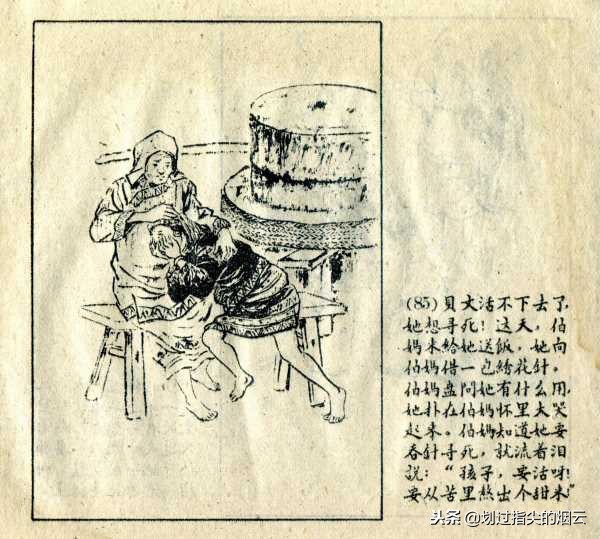 (85)貝文活不下去了,
她想寻死！这天，伯
媽来給她送飯，她向
伯媽借一包綉花針。
伯媽盘問她有什么用,
她扑在伯媽怀里大哭
起来。伯媽知道她要
吞針寻死，就流着泪
說：“孩子，要活呀！
要从苦里熬出个甜来”
头条@划过指尖的烟云